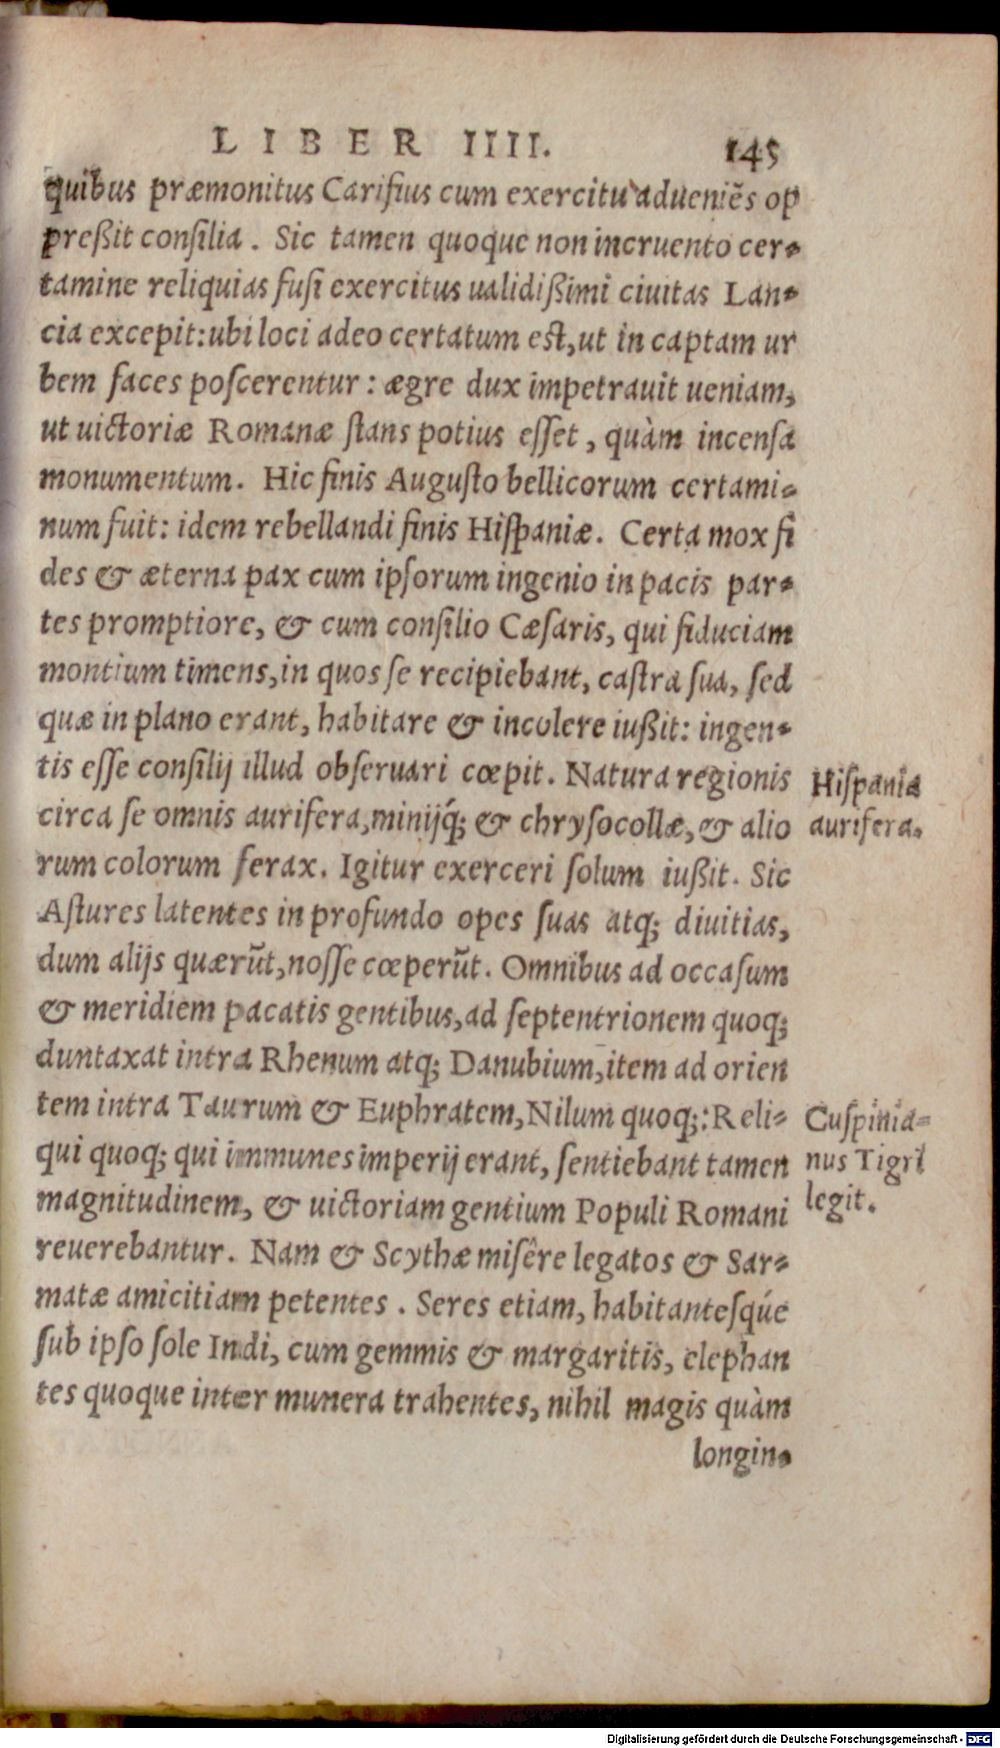 LIBER IIII. 145
quibus præmonitus Carisius cum exercitu adueniẽs op
preßit consilia. Sic tamen quoque non incruento cer-
tamine reliquias fusi exercitus ualidißimi ciuitas Lan-
cia excepit: ubi loci adeo certatum est, ut in captam ur
bem faces poscerentur: ægre dux impetrauit ueniam,
ut uictoriæ Romanæ stans potius esset, quàm incensa
monumentum. Hic finis Augusto bellicorum certami-
num fuit: idem rebellandi finis Hispaniæ. Certa mox fi
des & æterna pax cum ipsorum ingenio in pacis par-
tes promptiore, & cum consilio Cæsaris, qui fiduciam
montium timens, in quos se recipiebant, castra sua, sed
quæ in plano erant, habitare & incolere iußit: ingen-
tis esse consilij illud obseruari cœpit. Natura regionis
circa se omnis aurifera, minijq́; & chrysocollæ, & alio
rum colorum ferax. Igitur exerceri solum iußit. Sic
Astures latentes in profundo opes suas atq; diuitias,
dum alijs quærũt, nosse cœperũt. Omnibus ad occasum
& meridiem pacatis gentibus, ad septentrionem quoq;
duntaxat intra Rhenum atq; Danubium, item ad orien
tem intra Taurum & Euphratem, Nilum quoq;: Reli-
qui quoq; qui immunes imperij erant, sentiebant tamen
magnitudinem, & uictoriam gentium Populi Romani
reuerebantur. Nam & Scythæ misêre legatos & Sar-
matæ amicitiam petentes. Seres etiam, habitantesq́ue
sub ipso sole Indi, cum gemmis & margaritis, elephan
tes quoque inter munera trahentes, nihil magis quàm
longin-
Hispania
aurifera.
Cuspinia-
nus Tigri
legit.
Digitalisierung gefördert durch die Deutsche Forschungsgemeinschaft - DFG